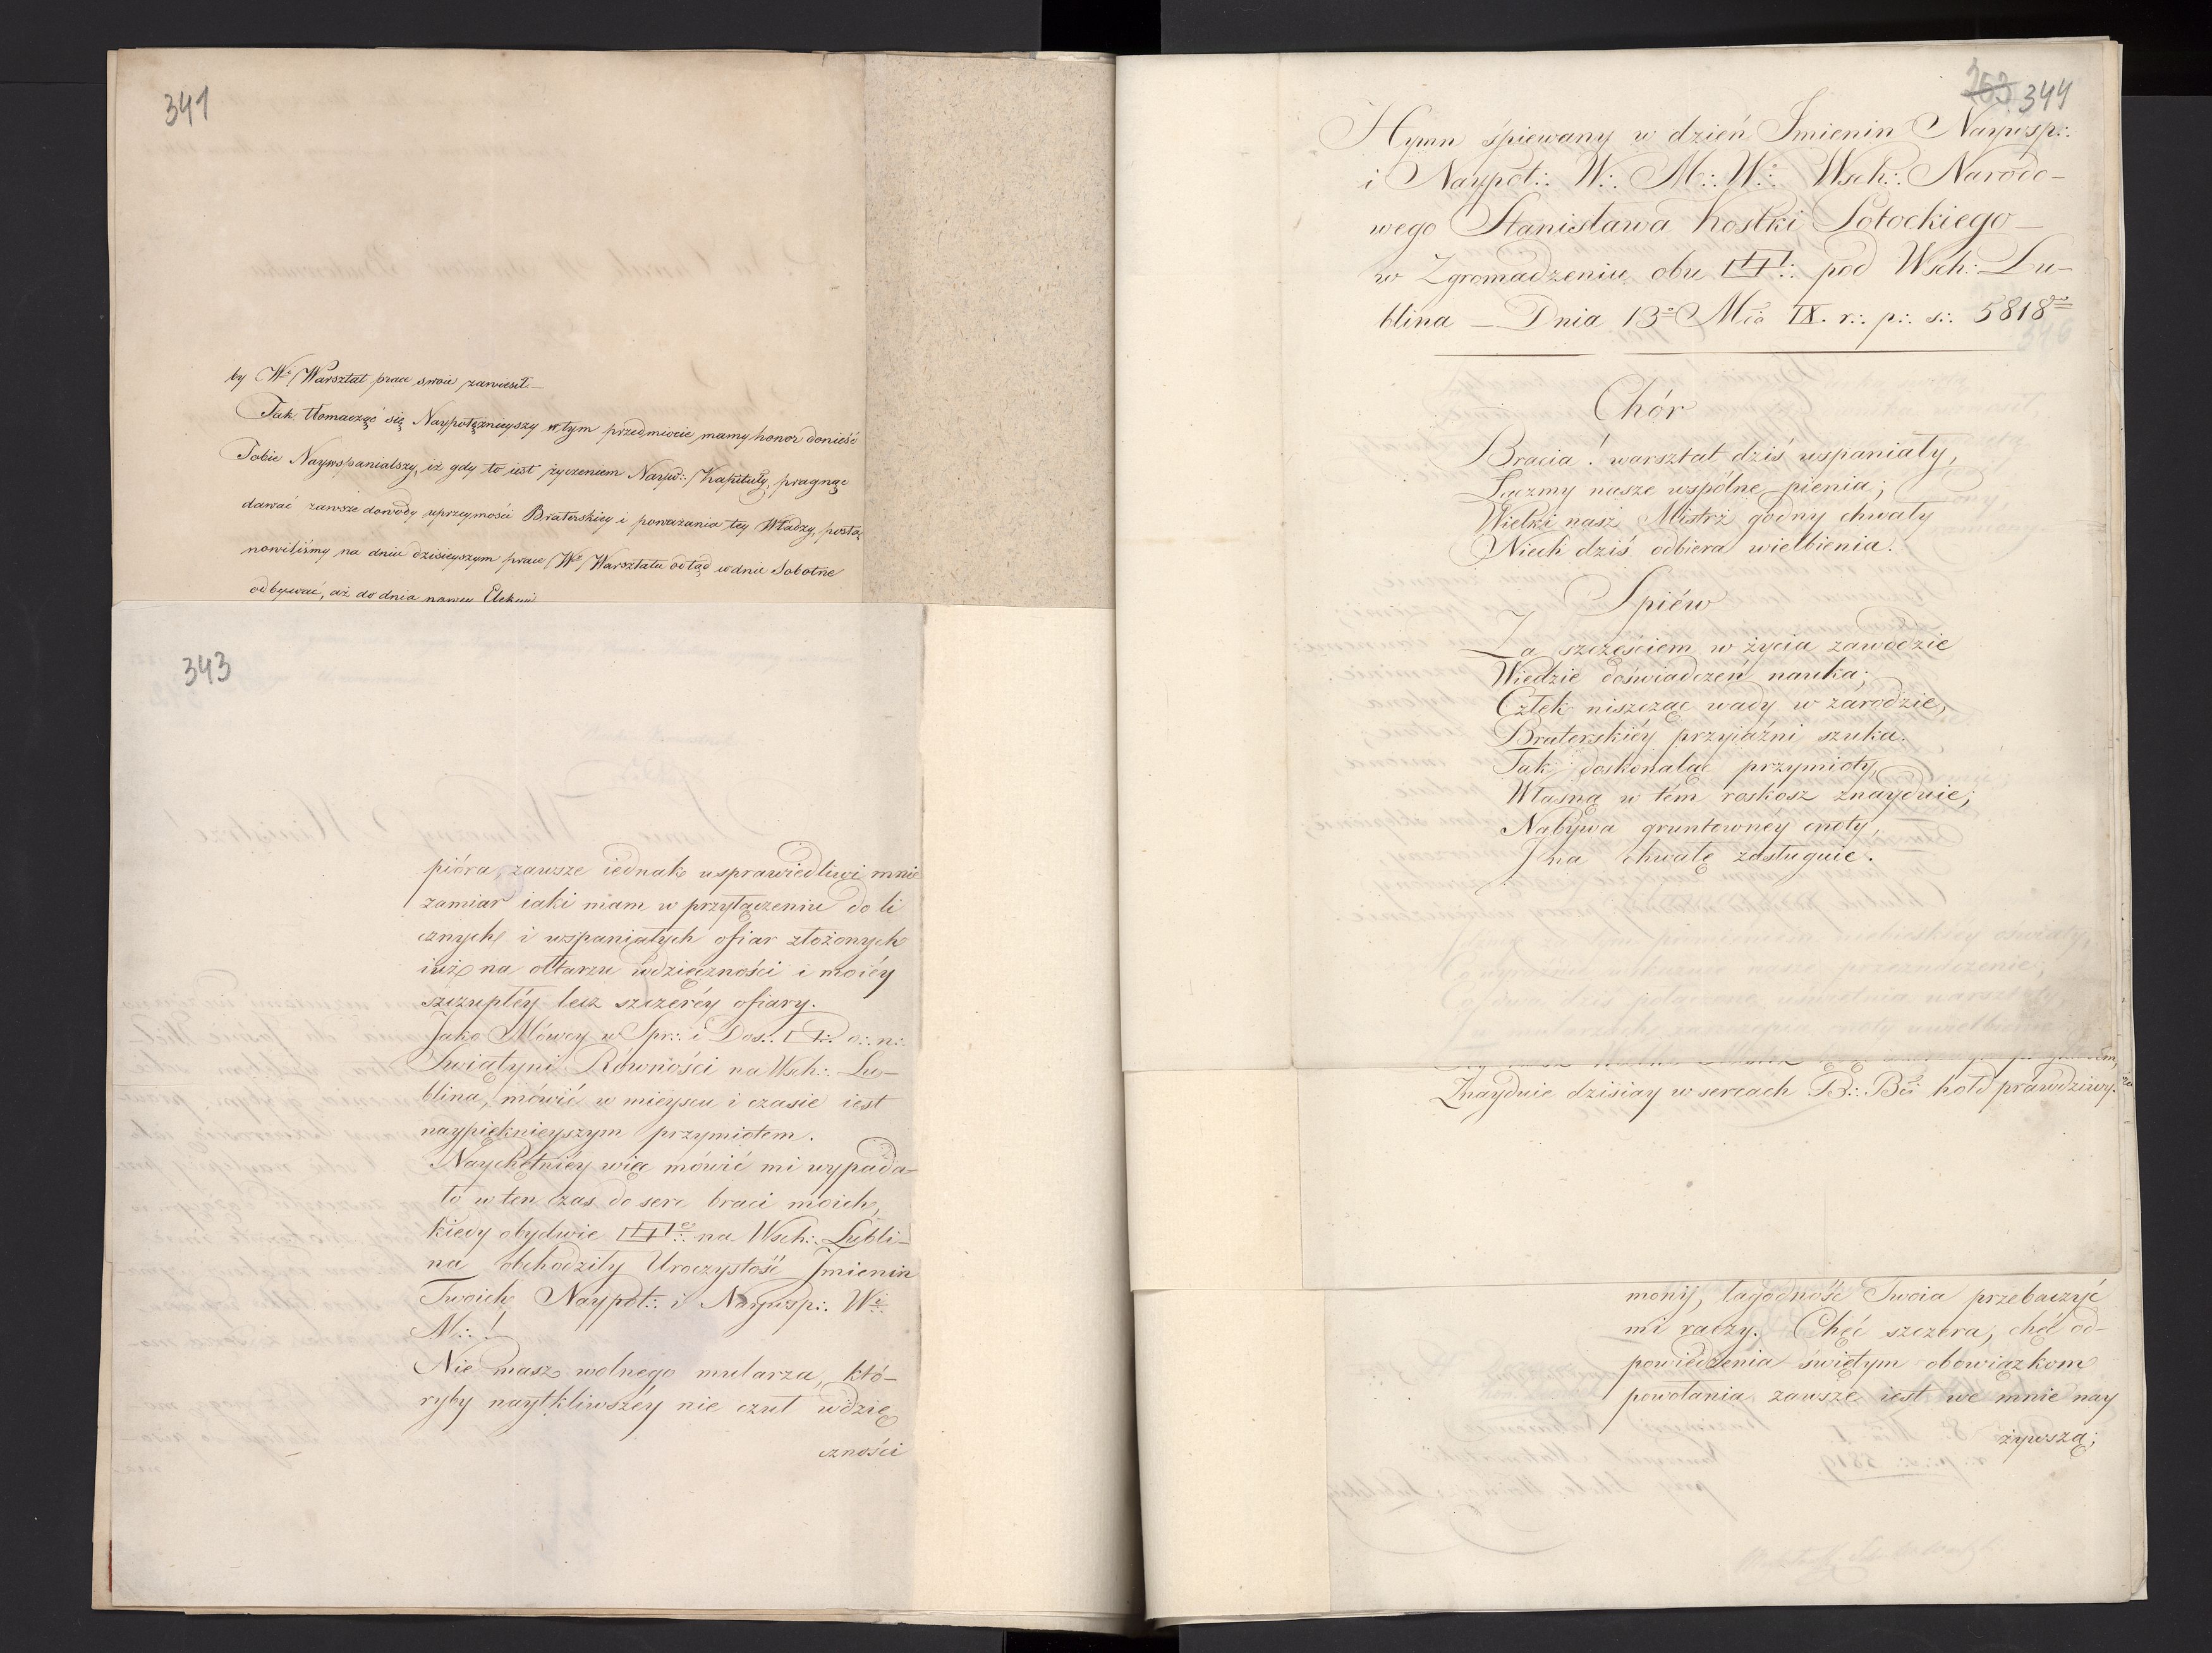 341
by W° Warsztat prace swoie zawiesił.—
Tak tłomacząc się Naypotężnieyszy w tym przedmiocie mamy honor donieść
Tobie Naywspanialszy, iż gdy to iest życzeniem Nayw:. Kapituły, pragnąc
dawać zawsze dowody uprzeymości Braterskiey i poważania tey Władzy, posta
nowiliśmy na dniu dzisieyszym prace W° Warsztatu odtąd w dnie Sobotne
odbywać, aż do dnia nowey Elekcyi
343
pióra, zawsze iednak usprawiedliwi mnie
zamiar iaki mam w przyłączeniu do li
cznych i wspaniałych ofiar złożonych
iuż na ołtarzu wdzięczności i moiéy
szczupłéy lecz szczeréy ofiary.
Jako Mówcy w Spr:. i Dos:. o:. n:.
Swiątyni Równości na Wsch:. Lu-
blina, mówić w mieyscu i czasie iest
naypięknieyszym przymiotem.
Naychętniéy więc mówić mi wypada-
ło w ten czas do serc braci moich,
kiedy obydwie na Wsch:. Lubli-
na obchodziły Uroczystość Jmienin
Twoich Naypot:. i Naywsp:. W:.
M:. !
Nie masz wolnego mularza, któ-
ryby naytkliwszéy nie czuł wdzię
czności
263 344
Hymn śpiewany w dzień Imienin Naywsp:.
i Naypot:. W:. M:. W:. Wsch:. Narodo-
wego Stanisława Kostki Potockiego—
w Zgromadzeniu obu pod Wsch:. Lu-
blina — Dnia 13° Mca IX. r:. p:. s:. 5818
346
Chór
Bracia! warsztat dziś wspaniały,
Łączmy nasze wspólne pienia;
Wielki nasz Mistrz godny chwały
Niech dziś odbiera wielbienia.
Spiéw
Za szczęściem w życia zawodzie
Wiedzie doświadczeń nauka;
Człek niszcząc wady w zarodzie,
Braterskiéy przyiaźni szuka.
Tak doskonaląc przymioty,
Własną w tém roskosz znayduie;
Nabywa gruntowney cnoty,
J na chwałę zasługuie.
Znayduie dzisiay w sercach B:. Bci hołd prawdziwy.
monij, łagodność Twoia przebaczyć
mi raczy. Chęć szczera, chęć od-
powiedzenia świętym obowiązkom
powołania zawsze iest we mnie nay
żywszą;